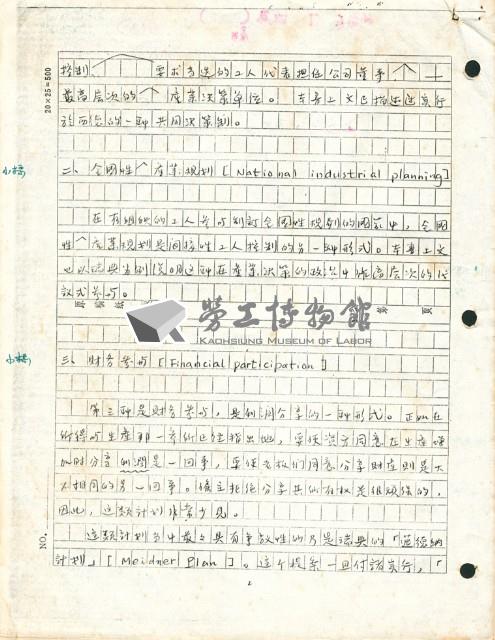 20×25=500
控制 要求当选的工人代表担任公司董事
最高层次的产业决策单位。本书上文已描述过实行
於西德的一种共同决策制。
小标
二、全国性产业规划[National industrial planning]
在有组织的工人参与制订全国性规划的国家中，全国
性产业规划是间接性工人控制的另一种形式。本书上文
也以瑞典为例说明这种在产业决策的政治中作高层次的代
议式参与。
勞工博物館
KAOHSIUNG MUSEUM OF LABOR
小标
三、财务参与[Financial participation]
第三种是财务参与，是利润分享的一种形式。正如在
所得与生产那一章所已经指出地，要使资方同意在生产增
加时分享利润是一回事，要使老板们同意分享财产则是大
不相同的另一回事。雇主拒绝分享其所有权是很顽强的，
因此，这类计划非常少见。
这类计划当中最具有争议性的乃是瑞典的「迈德纳
计划」[Meidner Plan]。这个提案一旦付诸实行，「
NO.
2